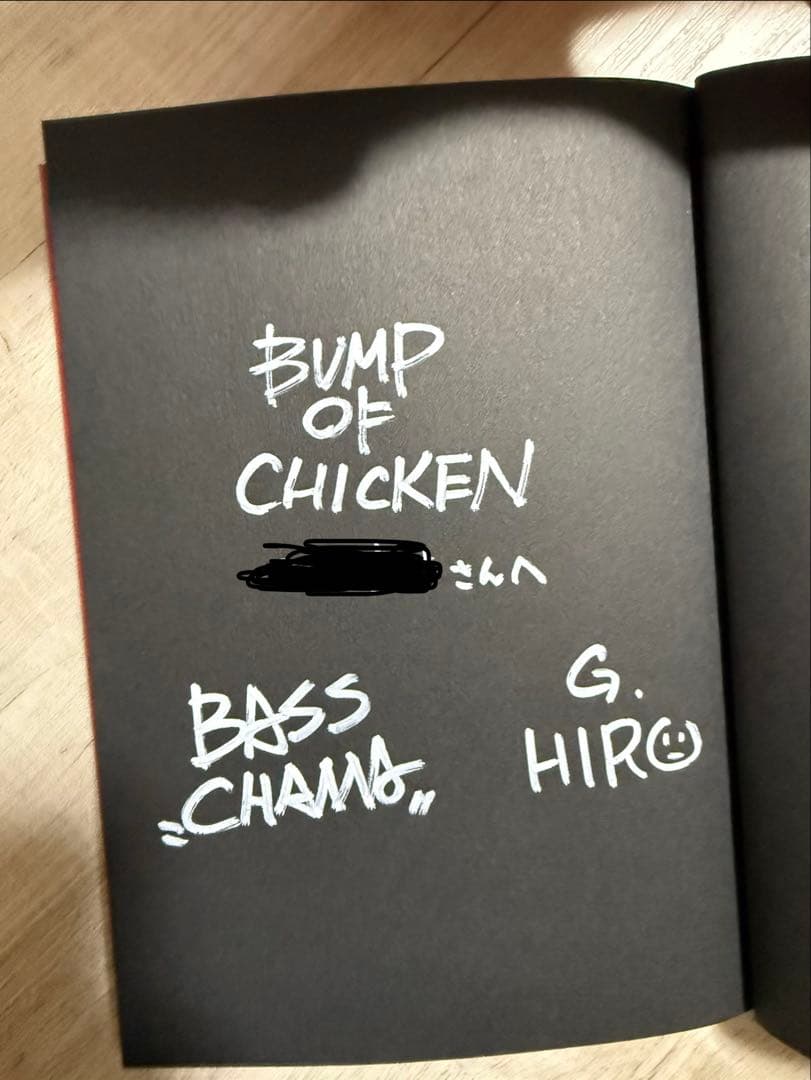 BUMP
OF
CHICKEN
さんへ
BASS
"CHAMA"
G.
HIRO